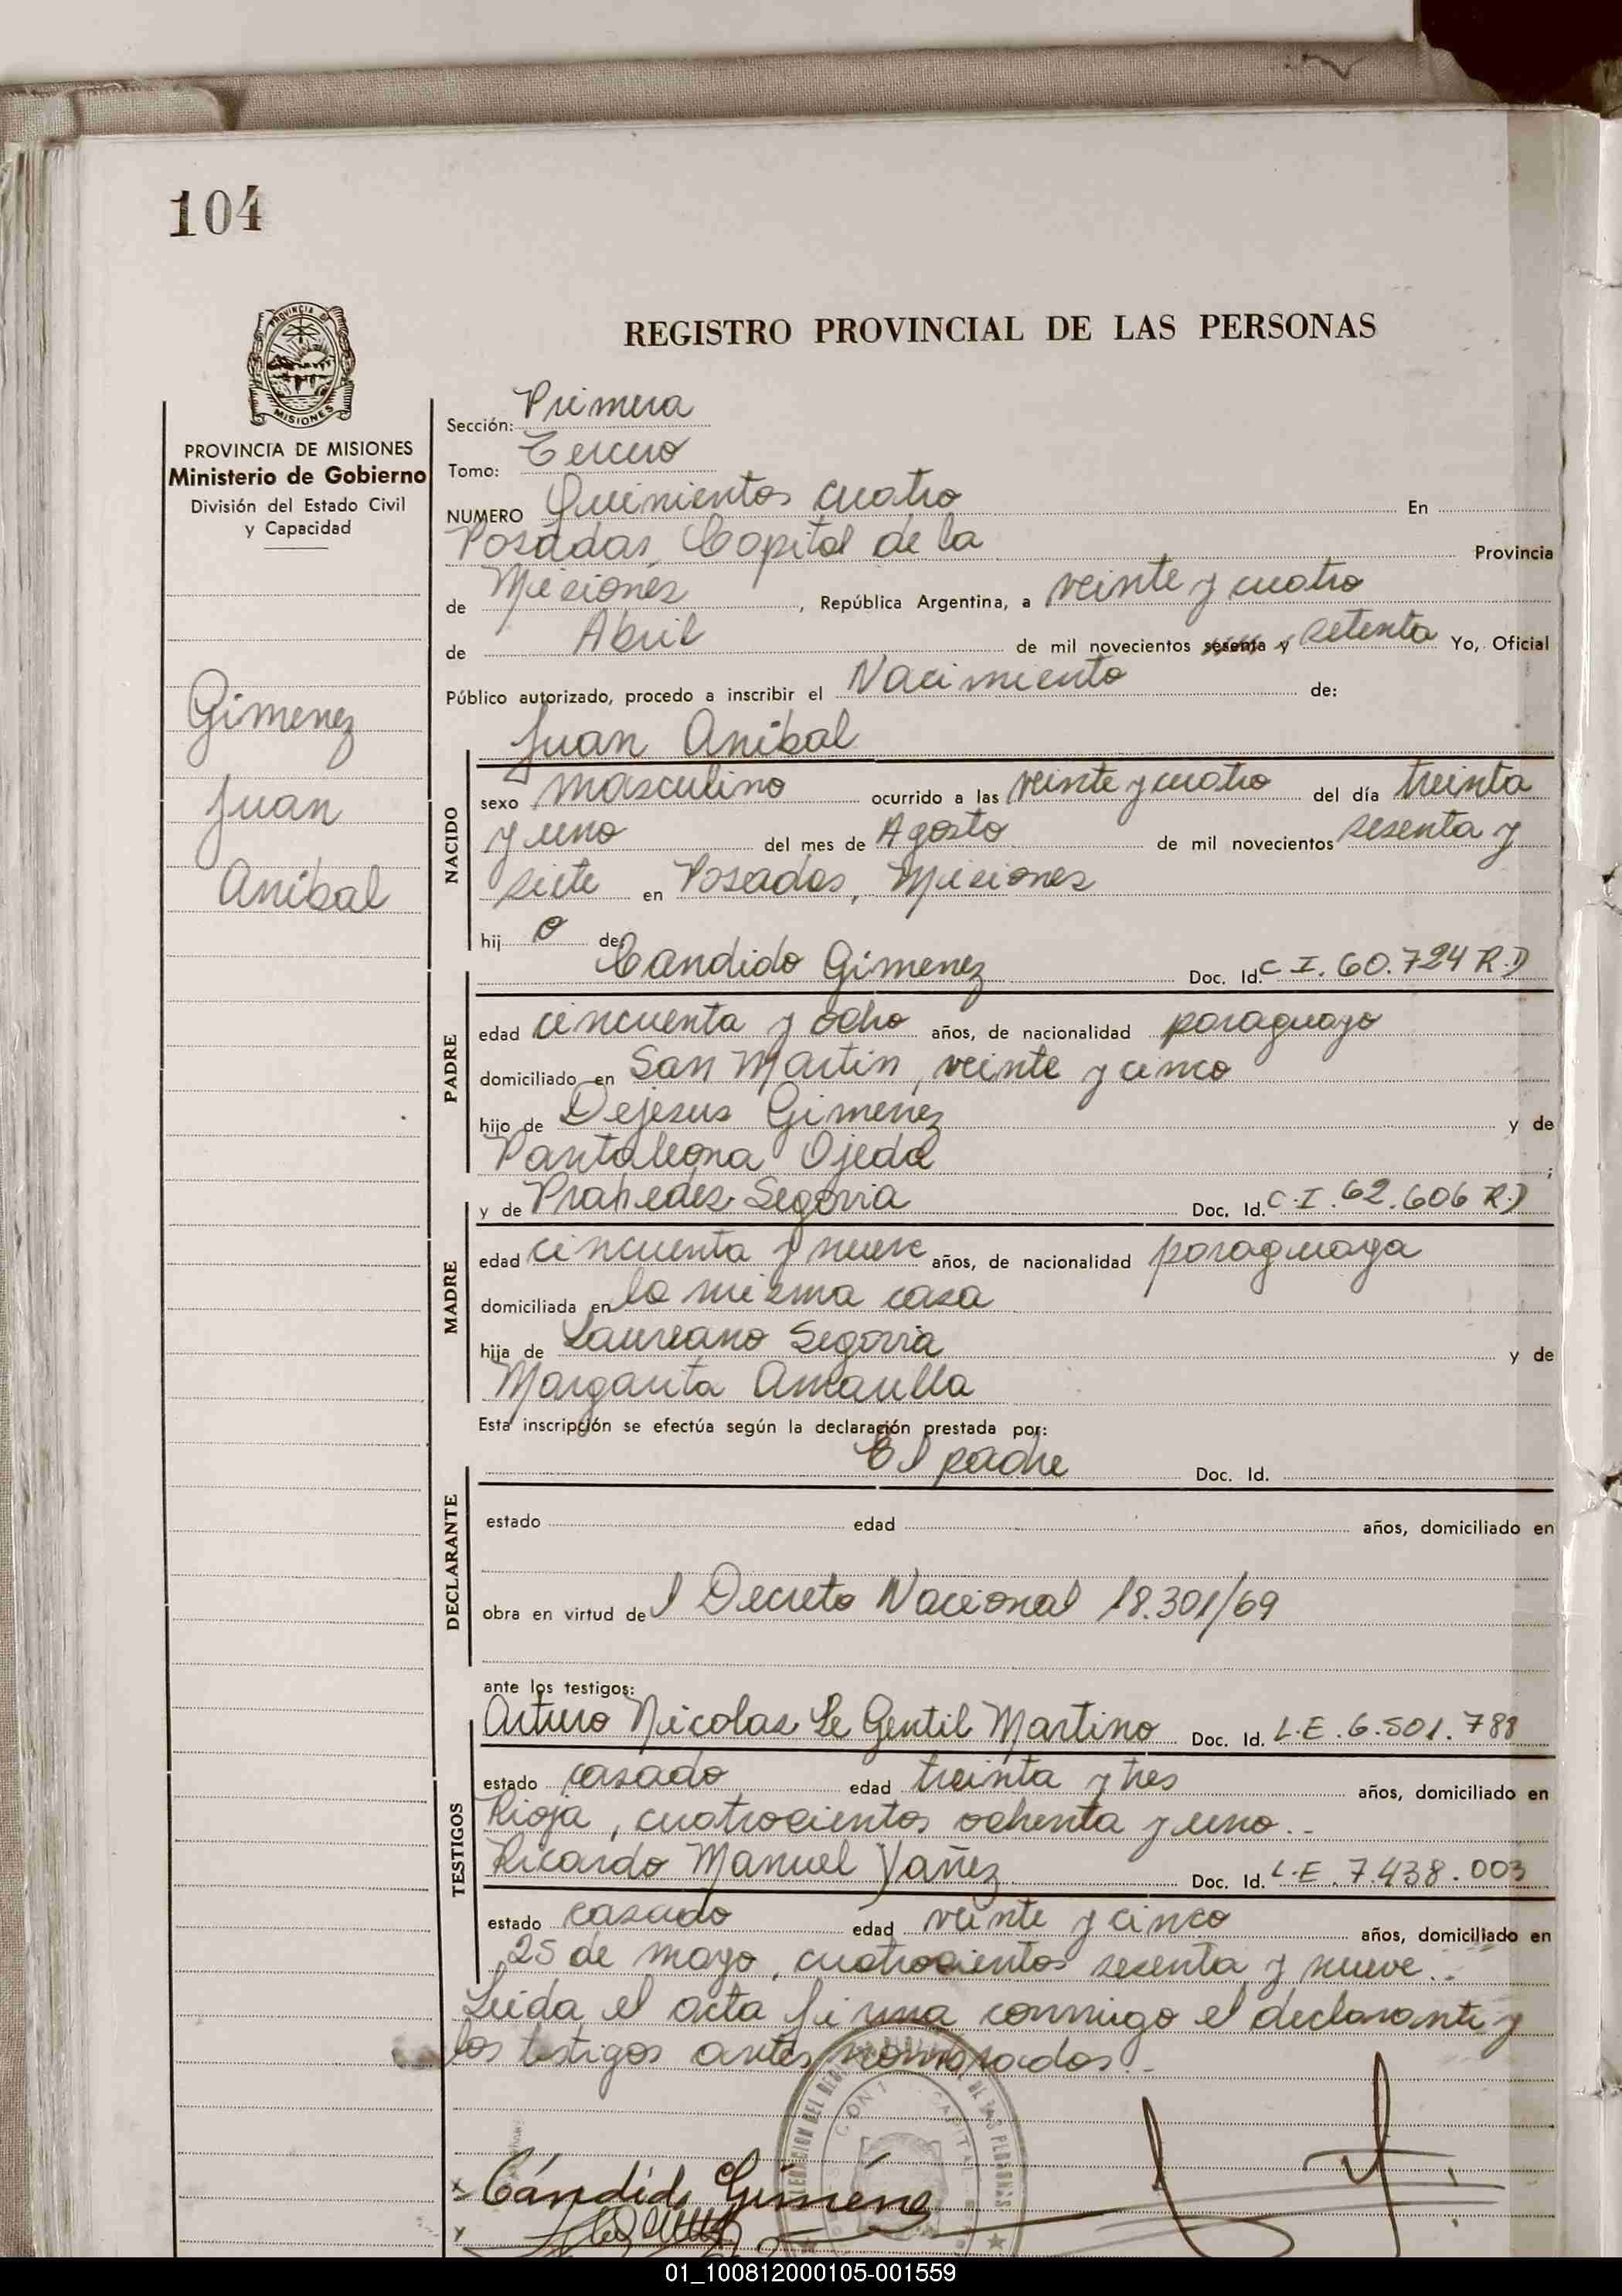 104
PROVINCIA DE MISIONES
REGISTRO PROVINCIAL DE LAS PERSONAS
PROVINCIA DE MISIONES
Ministerio de Gobierno
División del Estado Civil
y Capacidad
Gimenez
Juan
Anibal
Sección: Primera
Tomo: Tercero
NUMERO Quinientos cuatro En
Posadas, Capital de la Provincia
de Misiones, República Argentina, a veinte y cuatro
de Abril de mil novecientos sesenta y setenta Yo, Oficial
Público autorizado, procedo a inscribir el Nacimiento de:
Juan Anibal
NACIDO
sexo masculino ocurrido a las veinte y cuatro del día treinta
y uno del mes de Agosto de mil novecientos sesenta y
siete en Posadas, Misiones
hij o de:
Candido Gimenez Doc. Id. C.I. 60.724 R.P
PADRE
edad cincuenta y ocho años, de nacionalidad paraguayo
domiciliado en San Martin, veinte y cinco
hijo de Dejesus Gimenez y de
Pantaleona Ojeda ;
y de Segovia Doc. Id. C.I. 62.606 R.P
MADRE
edad cincuenta y nueve años, de nacionalidad paraguaya
domiciliada en la misma casa
hija de Laureano Segovia y de
Margarita Amarilla
Esta inscripción se efectúa según la declaración prestada por:
El padre Doc. Id.
DECLARANTE
estado edad años, domiciliado en
obra en virtud del Decreto Nacional 18.301/69
ante los testigos:
Arturo Nicolas Le Gentil Martino Doc. Id. L.E. 6.501.788
TESTIGOS
estado casado edad treinta y tres años, domiciliado en
Rioja, cuatrocientos ochenta y uno.-
Ricardo Manuel Yañez Doc. Id. L.E. 7.438.003
estado casado edad veinte y cinco años, domiciliado en
25 de mayo, cuatrocientos sesenta y nueve.-
Leida el acta firma conmigo el declarante y
los testigos antes nombrados.-
Cándido Giménez
01_100812000105-001559